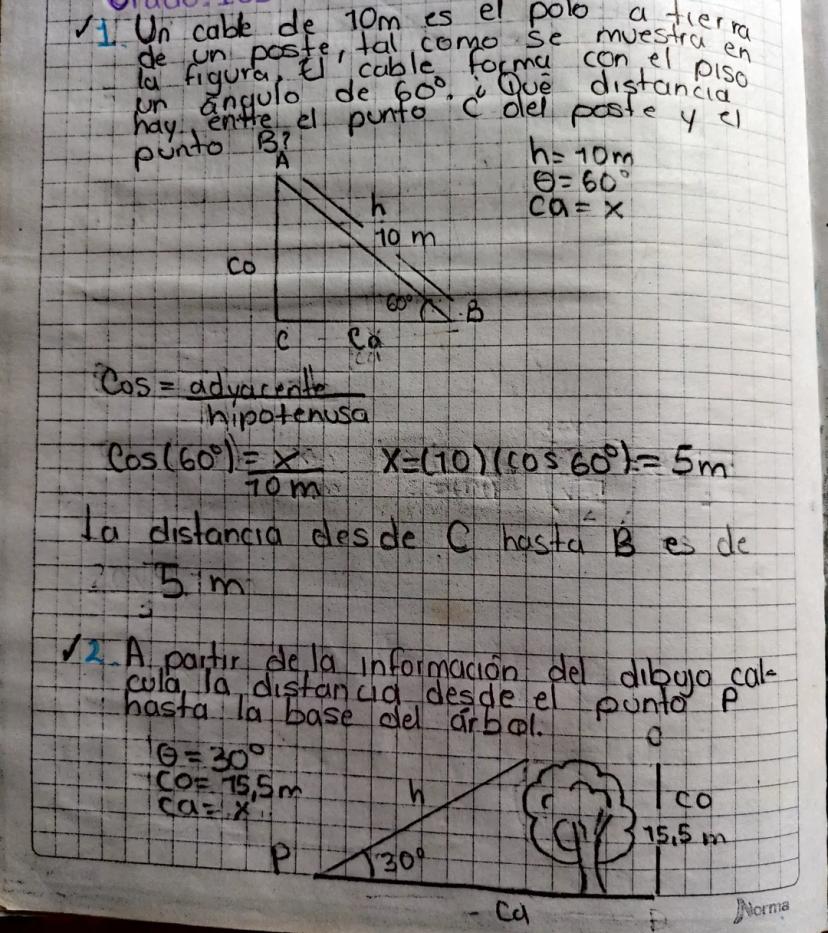 1. Un cable de 10m es el polo a tierra
de un poste, tal como se muestra en
la figura, El cable forma con el piso
un ángulo de 60°. ¿Qué distancia
hay entre el punto C del poste y el
punto B?
A
h= 10m
θ= 60°
ca= x
h
10 m
co
60°
B
C
Ca
Cos = adyacente
hipotenusa
Cos(60°)= x
10 m
x=(10)(cos 60°)= 5m
la distancia desde C hasta B es de
5 m
2. A partir de la información del dibujo cal-
cula la distancia desde el punto P
hasta la base del árbol.
θ= 30°
co= 15,5m
ca= x
h
co
15,5 m
P
30°
Ca
Norma